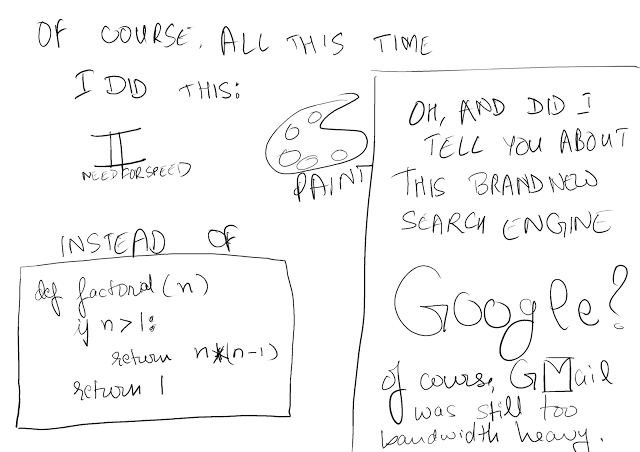 OF COURSE, ALL THIS TIME
I DID THIS:
II
NEED FOR SPEED
PAINT
INSTEAD OF
def factorial(n)
if n>1:
return n*(n-1)
return 1
OH, AND DID I
TELL YOU ABOUT
THIS BRAND NEW
SEARCH ENGINE
Google?
of course, GMail
was still too
bandwidth heavy.